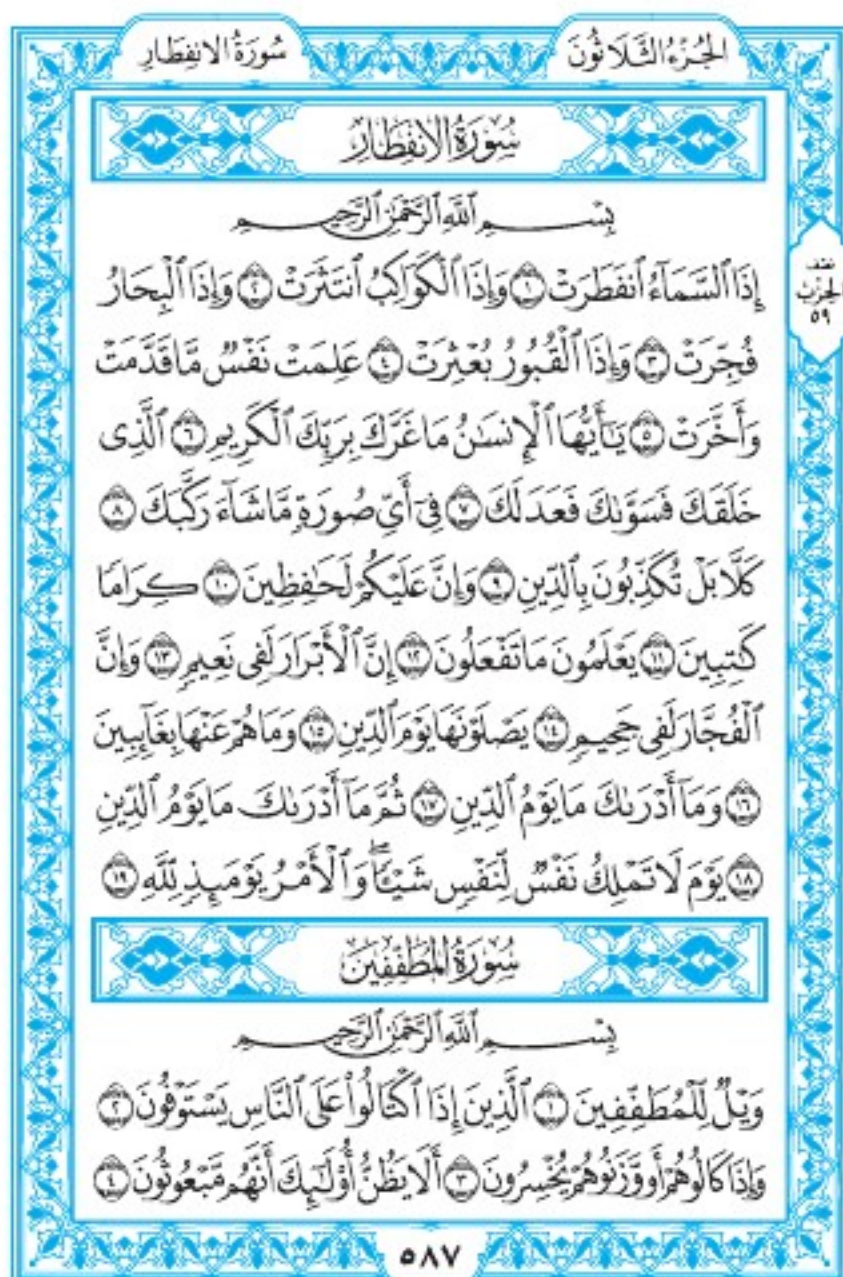 الجُزْءُ الثَّلَاثُونَ
سُورَةُ الانفِطَارِ
سُورَةُ الانفِطَارِ
بِسْمِ ٱللَّهِ ٱلرَّحْمَٰنِ ٱلرَّحِيمِ
إِذَا ٱلسَّمَآءُ ٱنفَطَرَتْ ١ وَإِذَا ٱلْكَوَاكِبُ ٱنتَثَرَتْ ٢ وَإِذَا ٱلْبِحَارُ
نصف
الحِزْبِ
٥٩
فُجِّرَتْ ٣ وَإِذَا ٱلْقُبُورُ بُعْثِرَتْ ٤ عَلِمَتْ نَفْسٌ مَّا قَدَّمَتْ
وَأَخَّرَتْ ٥ يَٰٓأَيُّهَا ٱلْإِنسَٰنُ مَا غَرَّكَ بِرَبِّكَ ٱلْكَرِيمِ ٦ ٱلَّذِى
خَلَقَكَ فَسَوَّىٰكَ فَعَدَلَكَ ٧ فِىٓ أَىِّ صُورَةٍ مَّا شَآءَ رَكَّبَكَ ٨
كَلَّا بَلْ تُكَذِّبُونَ بِٱلدِّينِ ٩ وَإِنَّ عَلَيْكُمْ لَحَٰفِظِينَ ١٠ كِرَامًا
كَٰتِبِينَ ١١ يَعْلَمُونَ مَا تَفْعَلُونَ ١٢ إِنَّ ٱلْأَبْرَارَ لَفِى نَعِيمٍ ١٣ وَإِنَّ
ٱلْفُجَّارَ لَفِى جَحِيمٍ ١٤ يَصْلَوْنَهَا يَوْمَ ٱلدِّينِ ١٥ وَمَا هُمْ عَنْهَا بِغَآئِبِينَ
١٦ وَمَآ أَدْرَىٰكَ مَا يَوْمُ ٱلدِّينِ ١٧ ثُمَّ مَآ أَدْرَىٰكَ مَا يَوْمُ ٱلدِّينِ
١٨ يَوْمَ لَا تَمْلِكُ نَفْسٌ لِّنَفْسٍ شَيْـًٔا ۖ وَٱلْأَمْرُ يَوْمَئِذٍ لِّلَّهِ ١٩
سُورَةُ المُطَفِّفِينَ
بِسْمِ ٱللَّهِ ٱلرَّحْمَٰنِ ٱلرَّحِيمِ
وَيْلٌ لِّلْمُطَفِّفِينَ ١ ٱلَّذِينَ إِذَا ٱكْتَالُوا۟ عَلَى ٱلنَّاسِ يَسْتَوْفُونَ ٢
وَإِذَا كَالُوهُمْ أَو وَّزَنُوهُمْ يُخْسِرُونَ ٣ أَلَا يَظُنُّ أُو۟لَٰٓئِكَ أَنَّهُم مَّبْعُوثُونَ ٤
٥٨٧